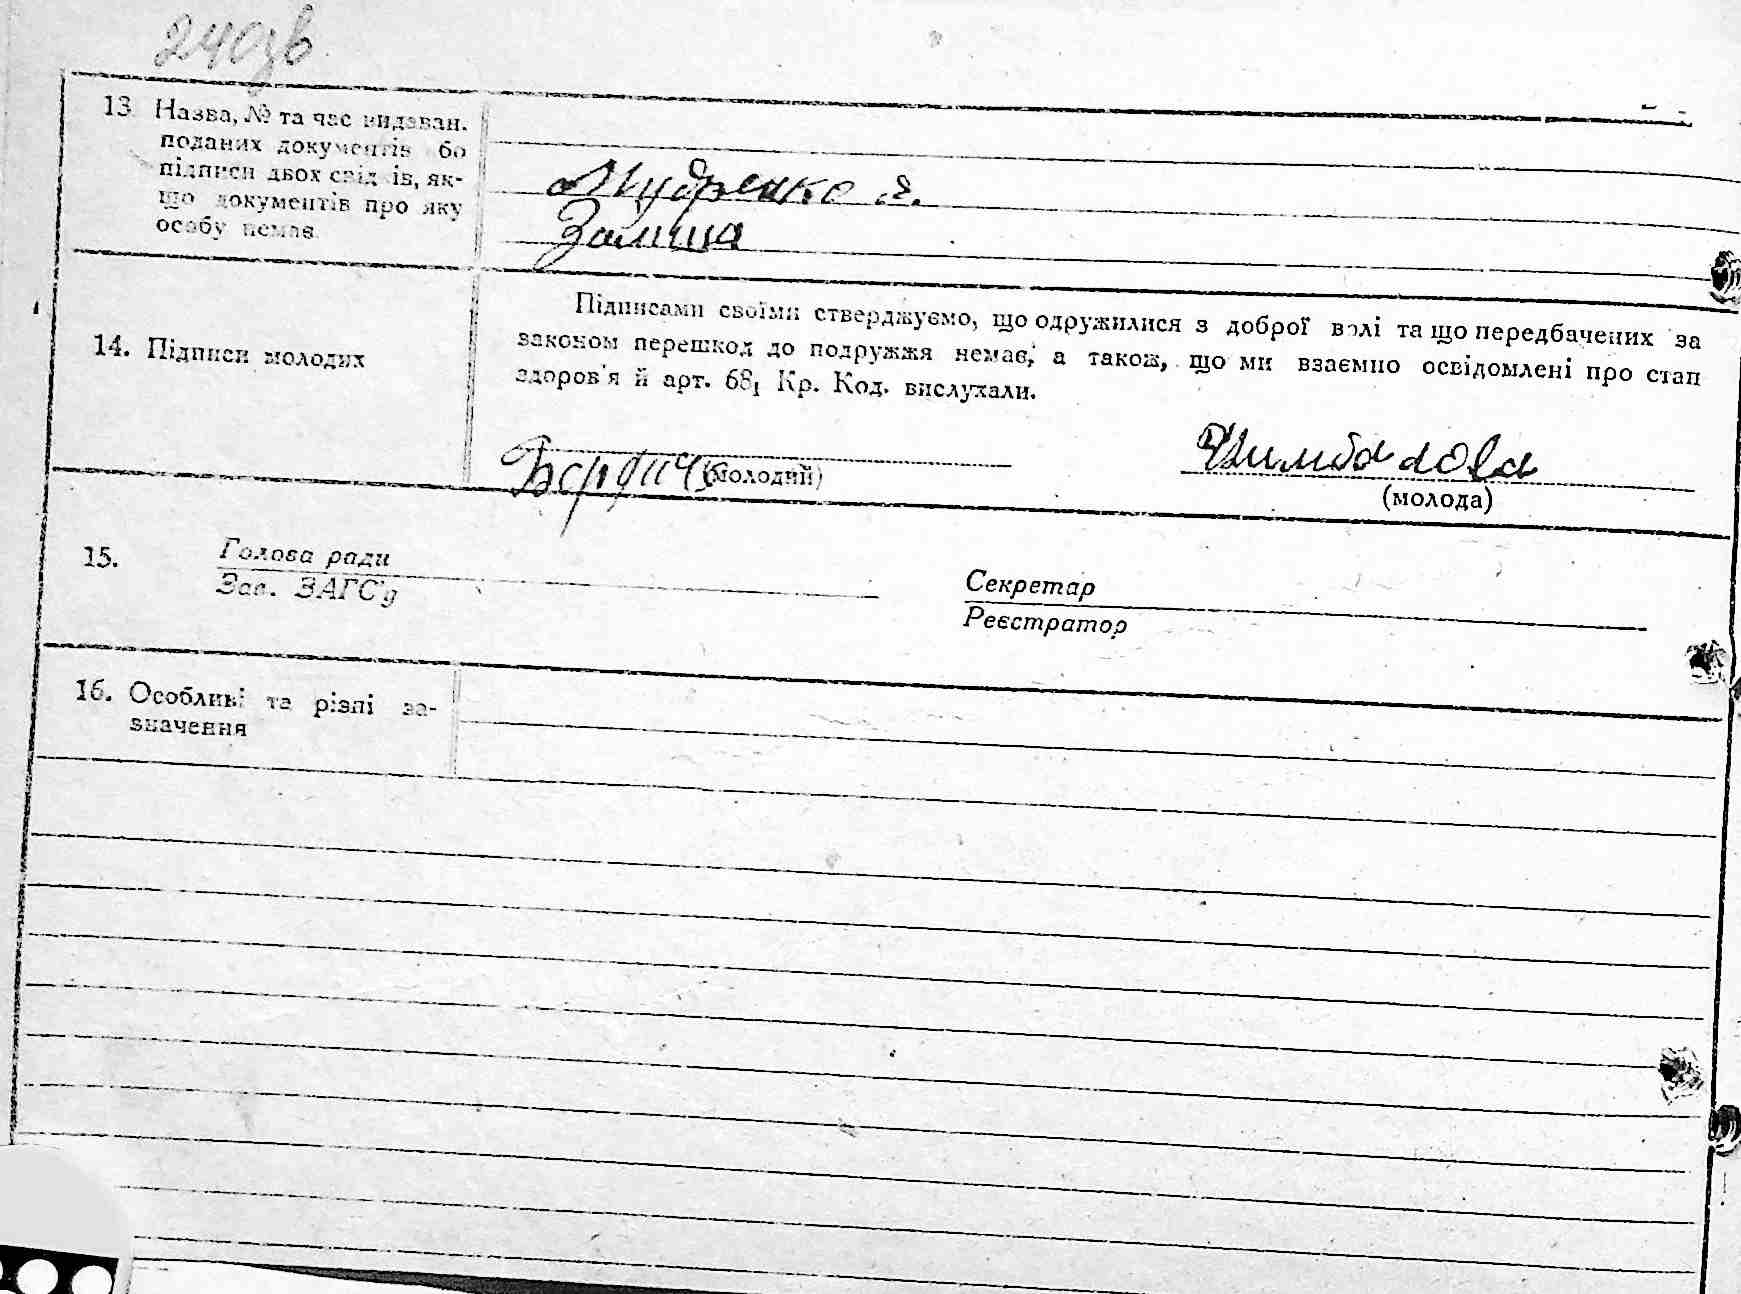 240зв
13 Назва, № та час видаван.
поданих документів або
підписи двох свідків, як-
що документів про яку
особу немає
Мудренко Я.
Підписами своїми стверджуємо, що одружилися з доброї волі та що передбачених за
14. Підписи молодих
законом перешкод до подружжя немає, а також, що ми взаємно освідомлені про стан
здоров'я й арт. 68₁ Кр. Код. вислухали.
(молодий)
(молода)
15. Голова ради
Зав. ЗАГС'у
Секретар
Реєстратор
16. Особливі та різні за-
значення